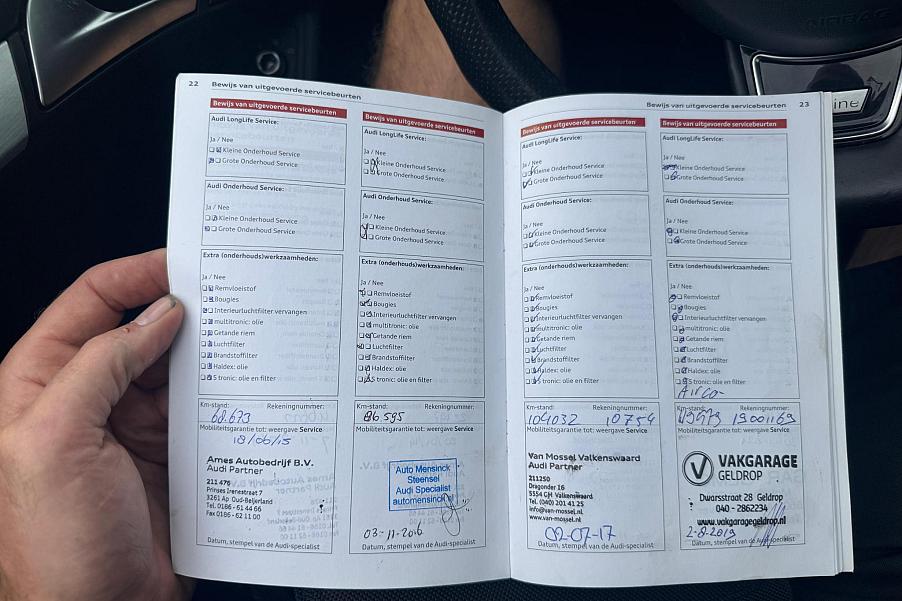 22 Bewijs van uitgevoerde servicebeurten
Bewijs van uitgevoerde servicebeurten
Audi LongLife Service:
Ja / Nee
Kleine Onderhoud Service
Grote Onderhoud Service
Audi Onderhoud Service:
Ja / Nee
Kleine Onderhoud Service
Grote Onderhoud Service
Extra (onderhouds)werkzaamheden:
Ja / Nee
Remvloeistof
Bougies
Interieurluchtfilter vervangen
multitronic: olie
Getande riem
Luchtfilter
Brandstoffilter
Haldex: olie
S tronic: olie en filter
Km-stand: Rekeningnummer:
68.673
Mobiliteitsgarantie tot: weergave Service
18/06/15
Ames Autobedrijf B.V.
Audi Partner
211 476
Prinses Irenestraat 7
3261 Ap Oud-Beijerland
Tel. 0186 - 61 44 66
Fax 0186 - 62 11 00
Datum, stempel van de Audi-specialist
Bewijs van uitgevoerde servicebeurten
Audi LongLife Service:
Ja / Nee
Kleine Onderhoud Service
Grote Onderhoud Service
Audi Onderhoud Service:
Ja / Nee
Kleine Onderhoud Service
Grote Onderhoud Service
Extra (onderhouds)werkzaamheden:
Ja / Nee
Remvloeistof
Bougies
Interieurluchtfilter vervangen
multitronic: olie
Getande riem
Luchtfilter
Brandstoffilter
Haldex: olie
S tronic: olie en filter
Km-stand: Rekeningnummer:
86.595
Mobiliteitsgarantie tot: weergave Service
Auto Mensinck
Steensel
Audi Specialist
automensinck
03-11-2016
Datum, stempel van de Audi-specialist
Bewijs van uitgevoerde servicebeurten 23
Bewijs van uitgevoerde servicebeurten
Audi LongLife Service:
Ja / Nee
Kleine Onderhoud Service
Grote Onderhoud Service
Audi Onderhoud Service:
Ja / Nee
Kleine Onderhoud Service
Grote Onderhoud Service
Extra (onderhouds)werkzaamheden:
Ja / Nee
Remvloeistof
Bougies
Interieurluchtfilter vervangen
multitronic: olie
Getande riem
Luchtfilter
Brandstoffilter
Haldex: olie
S tronic: olie en filter
Km-stand: Rekeningnummer:
104032 10754
Mobiliteitsgarantie tot: weergave Service
Van Mossel Valkenswaard
Audi Partner
211250
Dragonder 16
5554 GM Valkenswaard
Tel. (040) 201 41 25
info@van-mossel.nl
www.van-mossel.nl
02-07-17
Datum, stempel van de Audi-specialist
Bewijs van uitgevoerde servicebeurten
Audi LongLife Service:
Ja / Nee
Kleine Onderhoud Service
Grote Onderhoud Service
Audi Onderhoud Service:
Ja / Nee
Kleine Onderhoud Service
Grote Onderhoud Service
Extra (onderhouds)werkzaamheden:
Ja / Nee
Remvloeistof
Bougies
Interieurluchtfilter vervangen
multitronic: olie
Getande riem
Luchtfilter
Brandstoffilter
Haldex: olie
S tronic: olie en filter
Airco-
Km-stand: Rekeningnummer:
19001169
Mobiliteitsgarantie tot: weergave Service
VAKGARAGE
GELDROP
Dwarsstraat 28 Geldrop
040 - 2862234
www.vakgaragegeldrop.nl
2-8-2019
Datum, stempel van de Audi-specialist
AIRBAG
ine